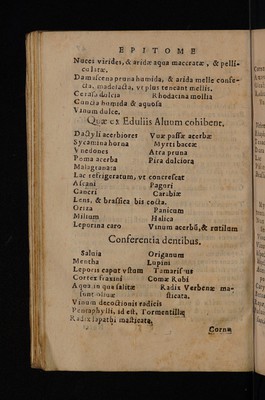 EPITOME
Nuces virides, & aridæ aqua maceratæ, & pelli-
culatæ.
Damascena pruna humida, & arida melle confe-
cta, madefacta, vt plus teneant mellis.
Cerasa dulcia Rhodacina mollia
Cuncta humida & aquosa
Vinum dulce.
Quæ ex Eduliis Aluum cohibent.
Dactyli acerbiores Vuæ passæ acerbæ
Sycamina horna Myrti baccæ
Vnedones Atra pruna
Poma acerba Pira duriora
Malagranata
Lac refrigeratum, vt concrescat
Astani Paguri
Cancri Carabiæ
Lens, & brassica bis cocta.
Oriza Panicum
Milium Halica
Leporina caro Vinum acerbũ, & rutilum
Conferentia dentibus.
Saluia Origanum
Mentha Lupini
Leporis caput vstum Tamariscus
Cortex fraxini Comæ Rubi
Aqua in qua salitæ Radix Verbenæ ma-
sunt oliuæ sticata.
Vinum decoctionis radicis
Pentaphylli, id est, Tormentillæ
Radix lapathi masticata,
Cornu